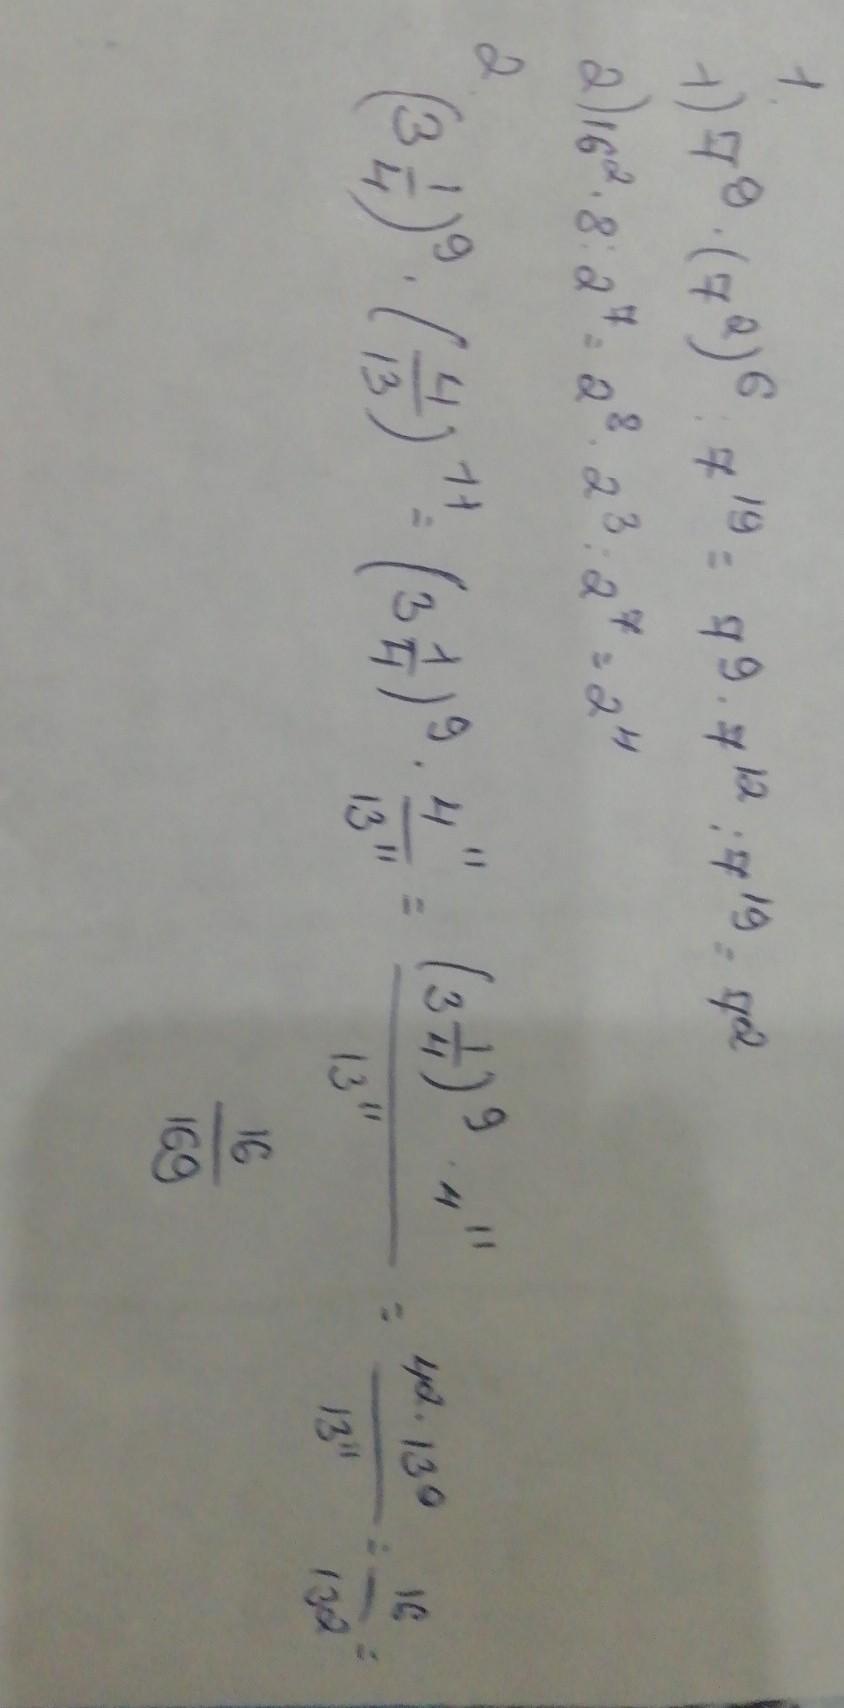 1.
1) 7⁹ · (7²)⁶ : 7¹⁹ = 7⁹ · 7¹² : 7¹⁹ = 7²
2) 16² · 8 : 2⁷ = 2⁸ · 2³ : 2⁷ = 2⁴
2.
(3 1/4)⁹ · (4/13)¹¹ = (3 1/4)⁹ · 4¹¹/13¹¹ = (3 1/4)⁹ · 4¹¹ / 13¹¹ = 4² · 13⁹ / 13¹¹ = 16/13² =
16/169